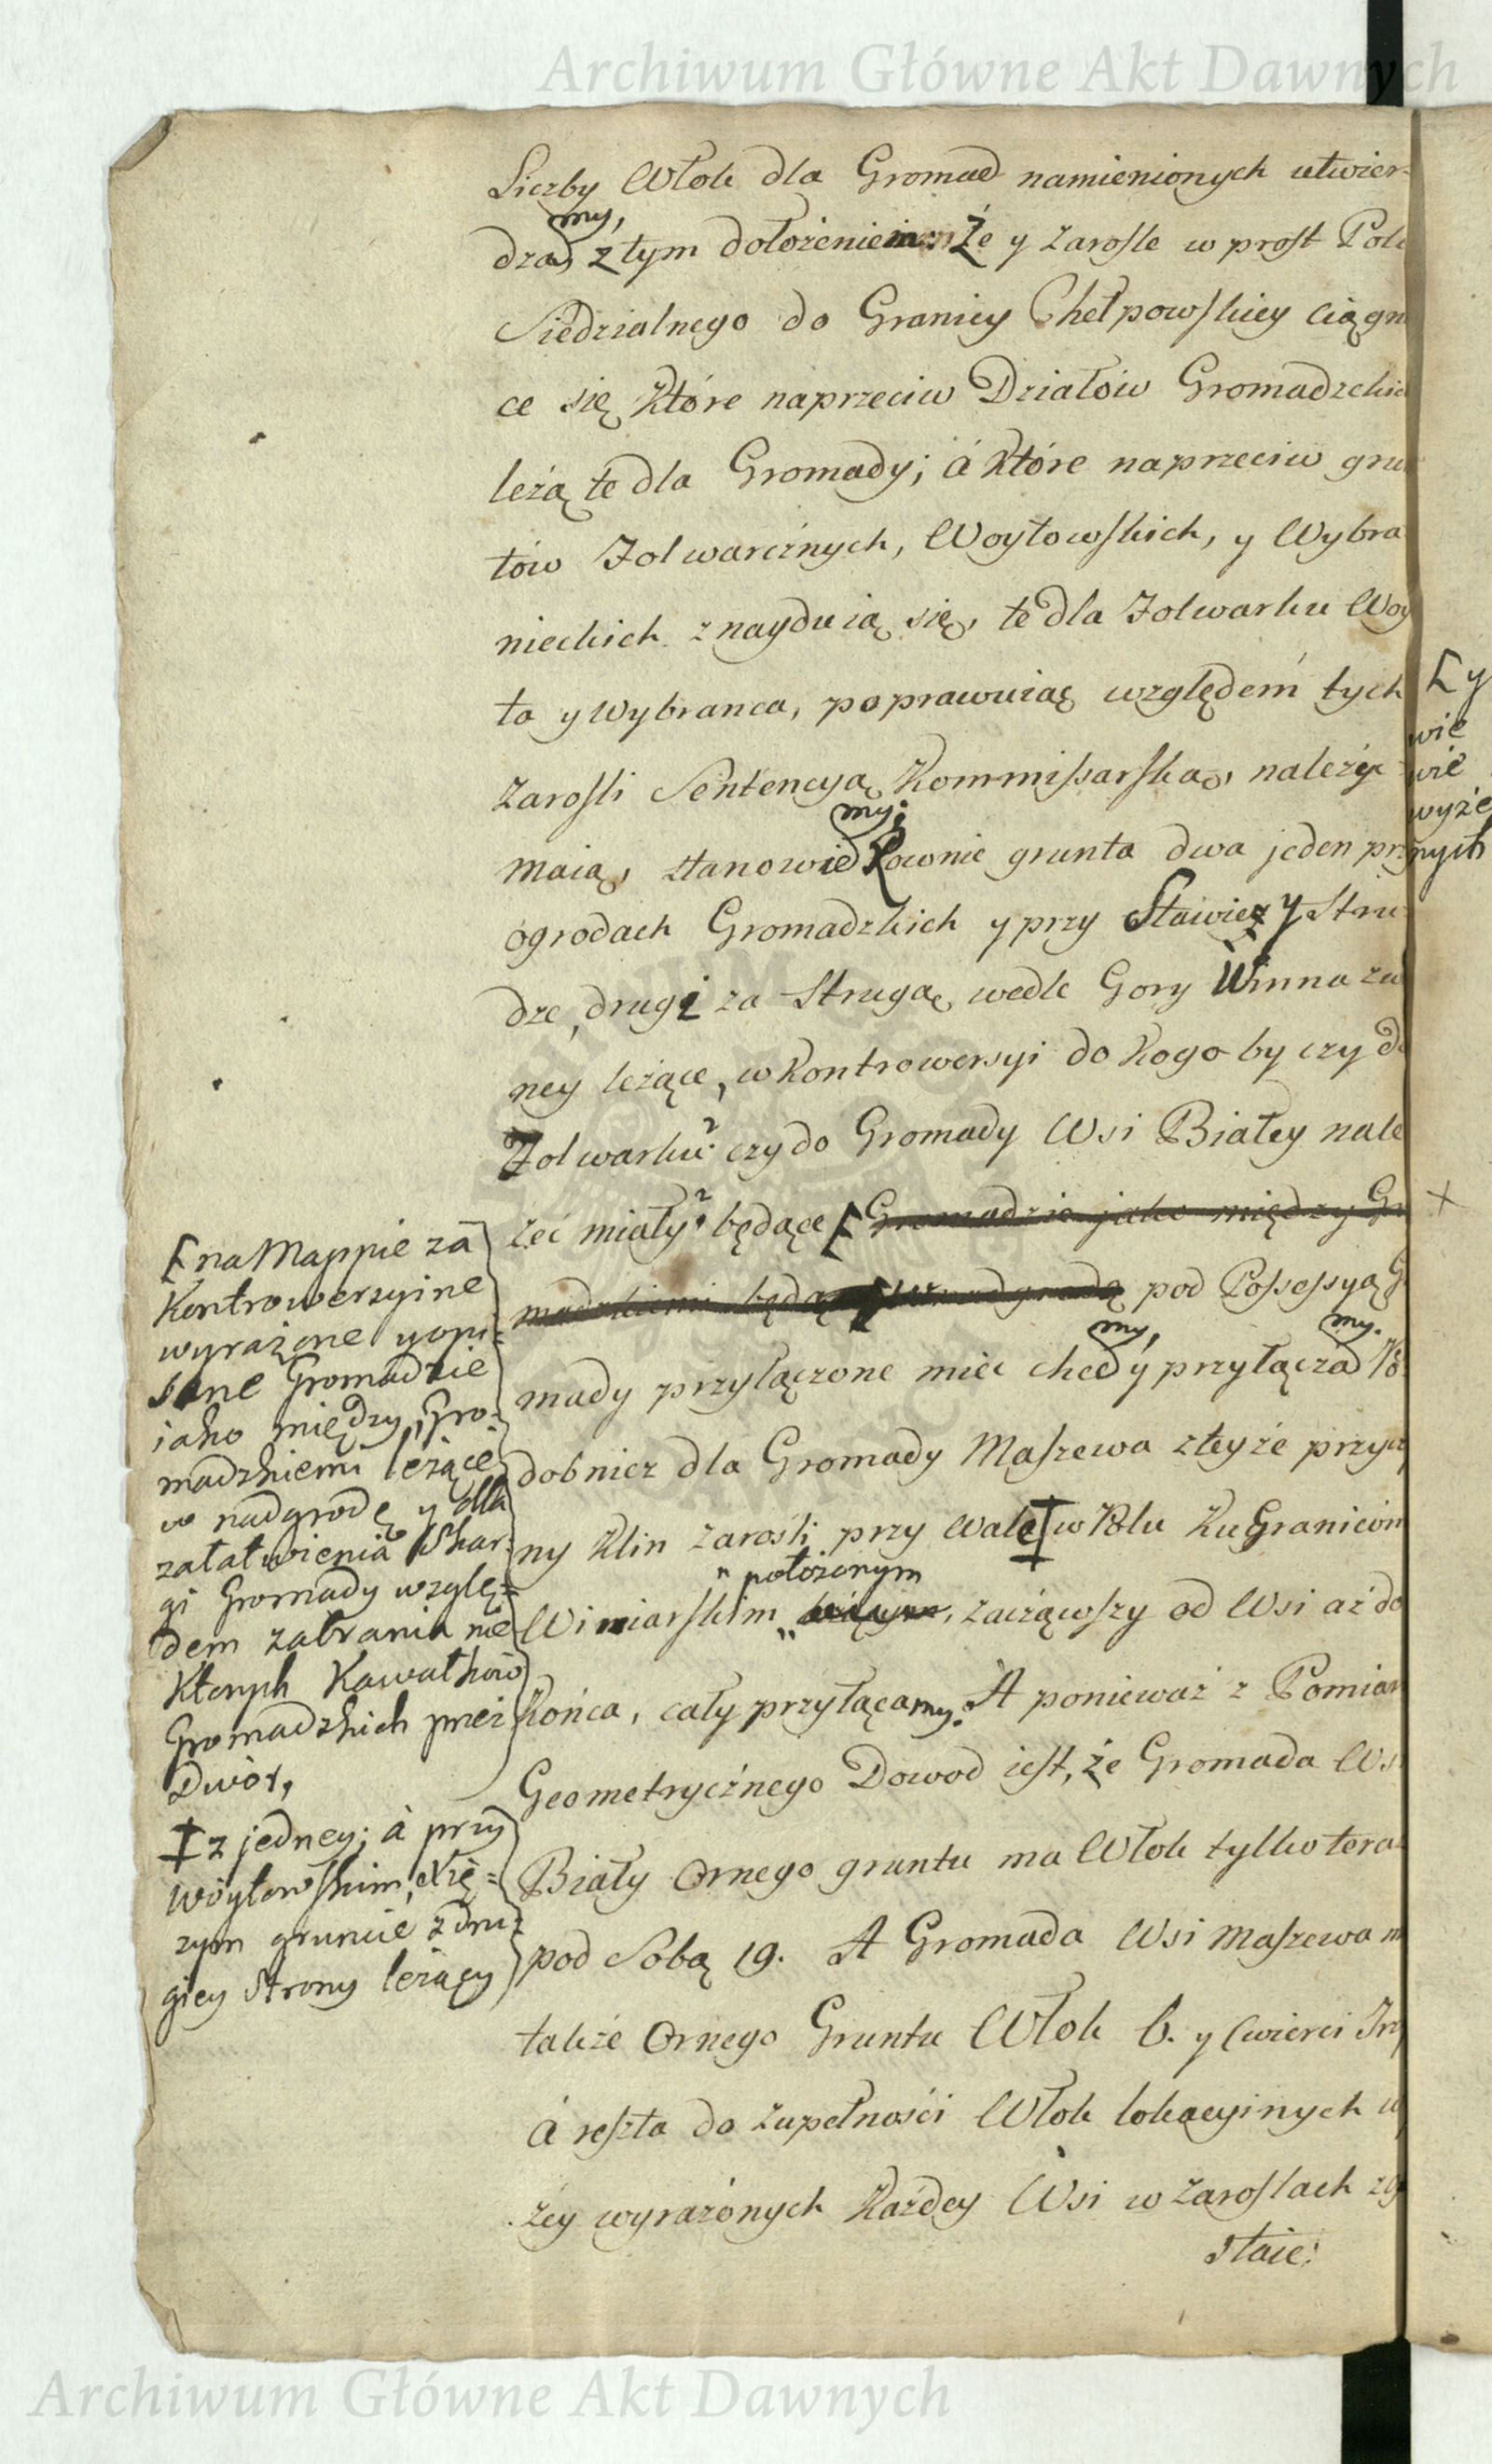 Archiwum Główne Akt Dawnych
Liczby Włok dla Gromad namienionych utwier-
my,
dzad z tym dołożeniem: Że y zarosle w prost Pola
Siedzialnego do Granicy Chełpowskiey ciągn
ce się, Które naprzeciw Działów Gromadzkic
leżą te dla Gromady; á Które naprzeciw grun
tów Folwarcznych, Woytowskich, y Wybra
nieckich znayduią się, te dla Folwarku Woy
ta y Wybranca, poprawuiąc względem tych
zarosli Sentencyą Kommissarską, należyc
my;
maią, stanowie Rownie grunta dwa jeden przy
ogrodach Gromadzkich y przy Stawie, y Stru-
dze, drugi za Strugą, wedle Gory Winna zw
ney leżące, w Kontrowersyi do Kogo by czy do
Folwarku? czy do Gromady Wsi Białey nale
żeć miały? będące [ Gromadzie jako między Gr
madzkiemi będące w nadgrodę pod Possessyą G
my, my.
mady przyłączone mieć chcedy przyłączad Po
dobnież dla Gromady Maszewa z teyże przycz
ny Klin zarośli przy Wale ‡ w Polu Ku Granicom
" położonym
Winiarskim, leżącym, zacząwszy od Wsi aż do
Końca, cały przyłączamy. A ponieważ z Pomiar
Geometrycznego Dowod iest, że Gromada Wsi
Biały Ornego gruntu ma Włok tylko teraz
pod Sobą 19. A Gromada Wsi Maszewa m
także Ornego Gruntu Włok 6. y Cwierci Trzy
á reszta do zupełności Włok lokacyinych wy
żey wyrażonych Każdey Wsi w zaroslach zo
staie:
[ na Mappie za
Kontrowersyine
wyrażone y opi-
sane Gromadzie
iako między Gro-
madzkiemi leżące
w nadgrodę y dla
załatwienia Skar-
gi Gromady wzglę-
dem zabrania nie
Ktorych Kawałkow
Gromadzkich przez
Dwór,
‡ z jedney; á przy
Woytowskim, Xię-
zym gruncie z dru-
giey Strony leżący
[ y
wie
wie
wyże
nych
+
Archiwum Główne Akt Dawnych